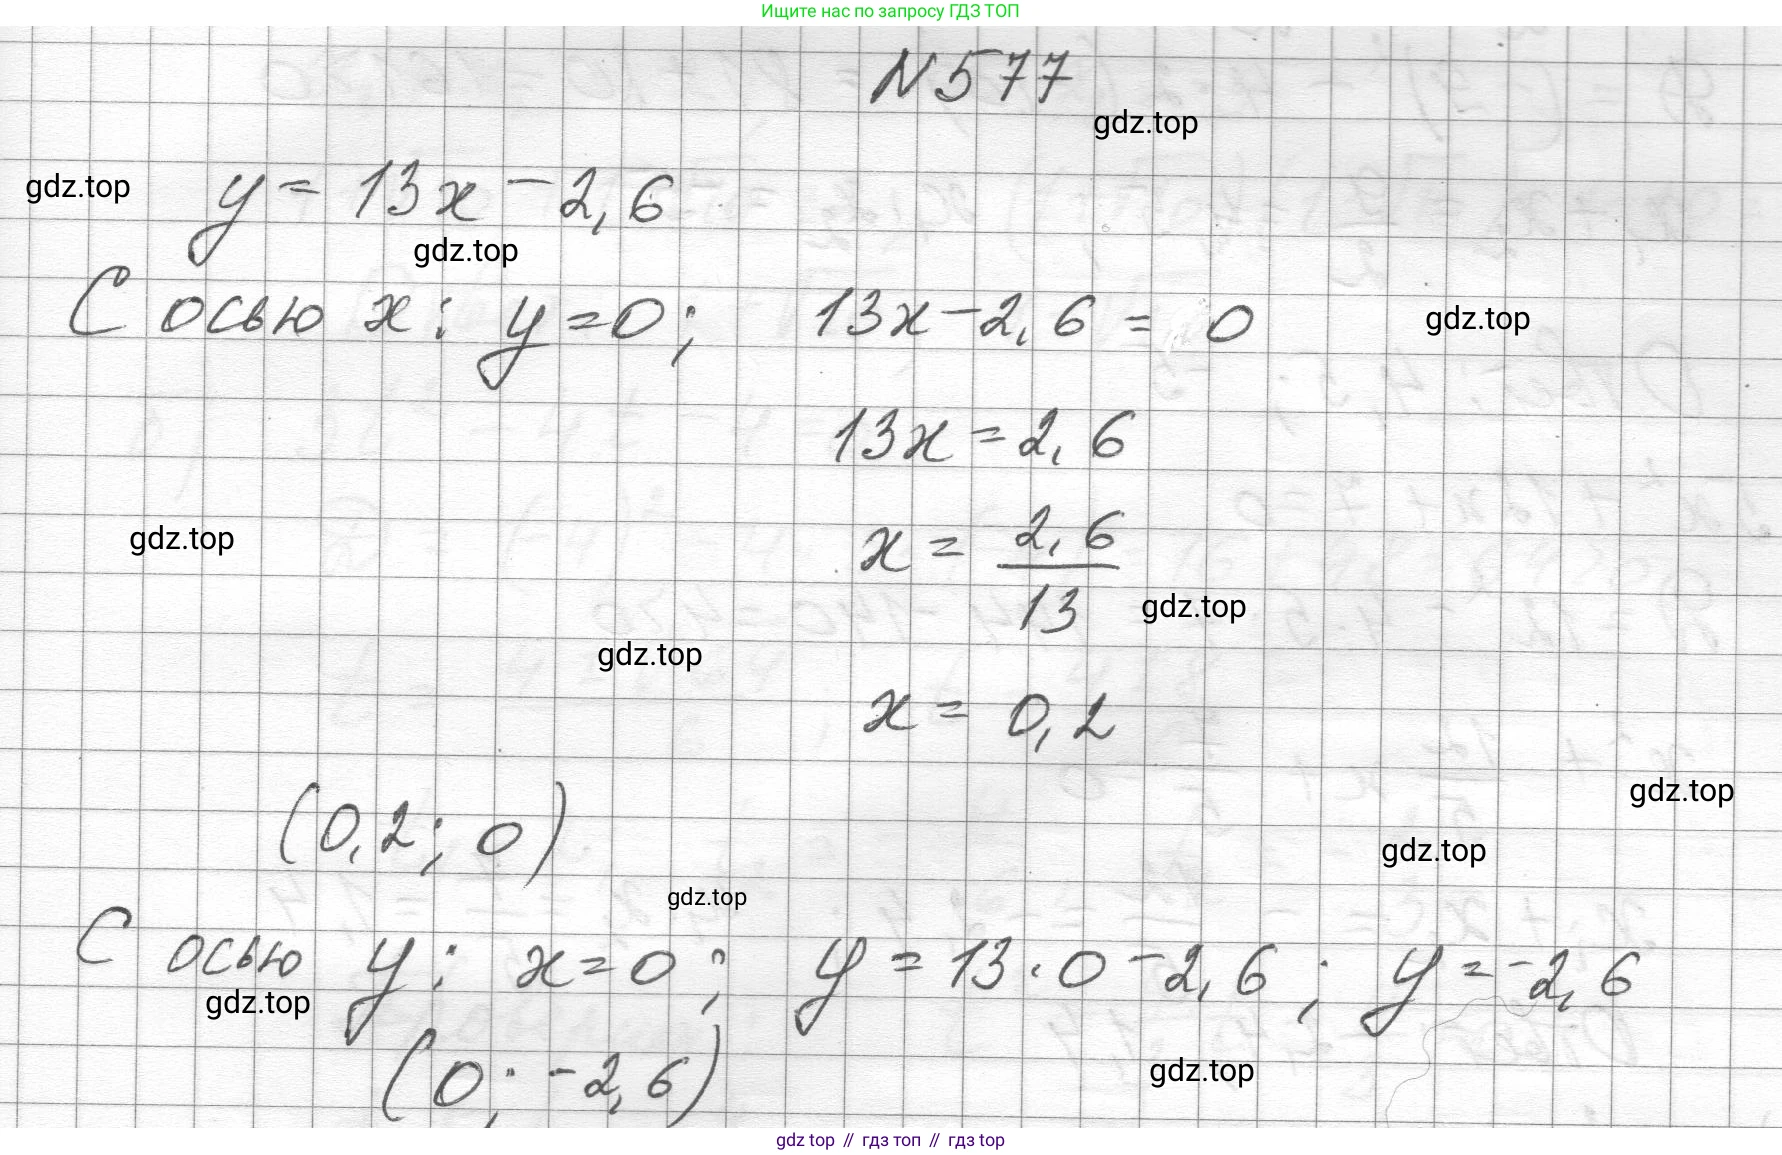 Ищите нас по запросу ГДЗ ТОП
N 577
gdz.top
y = 13x - 2,6
gdz.top
gdz.top
С осью x: y = 0; 13x - 2,6 = 0
gdz.top
13x = 2,6
x = 2,6/13
gdz.top
gdz.top
gdz.top
x = 0,2
gdz.top
(0,2; 0)
gdz.top
gdz.top
С осью y: x = 0; y = 13 · 0 - 2,6; y = -2,6
gdz.top
(0; -2,6)
gdz.top
gdz top // гдз топ // gdz top